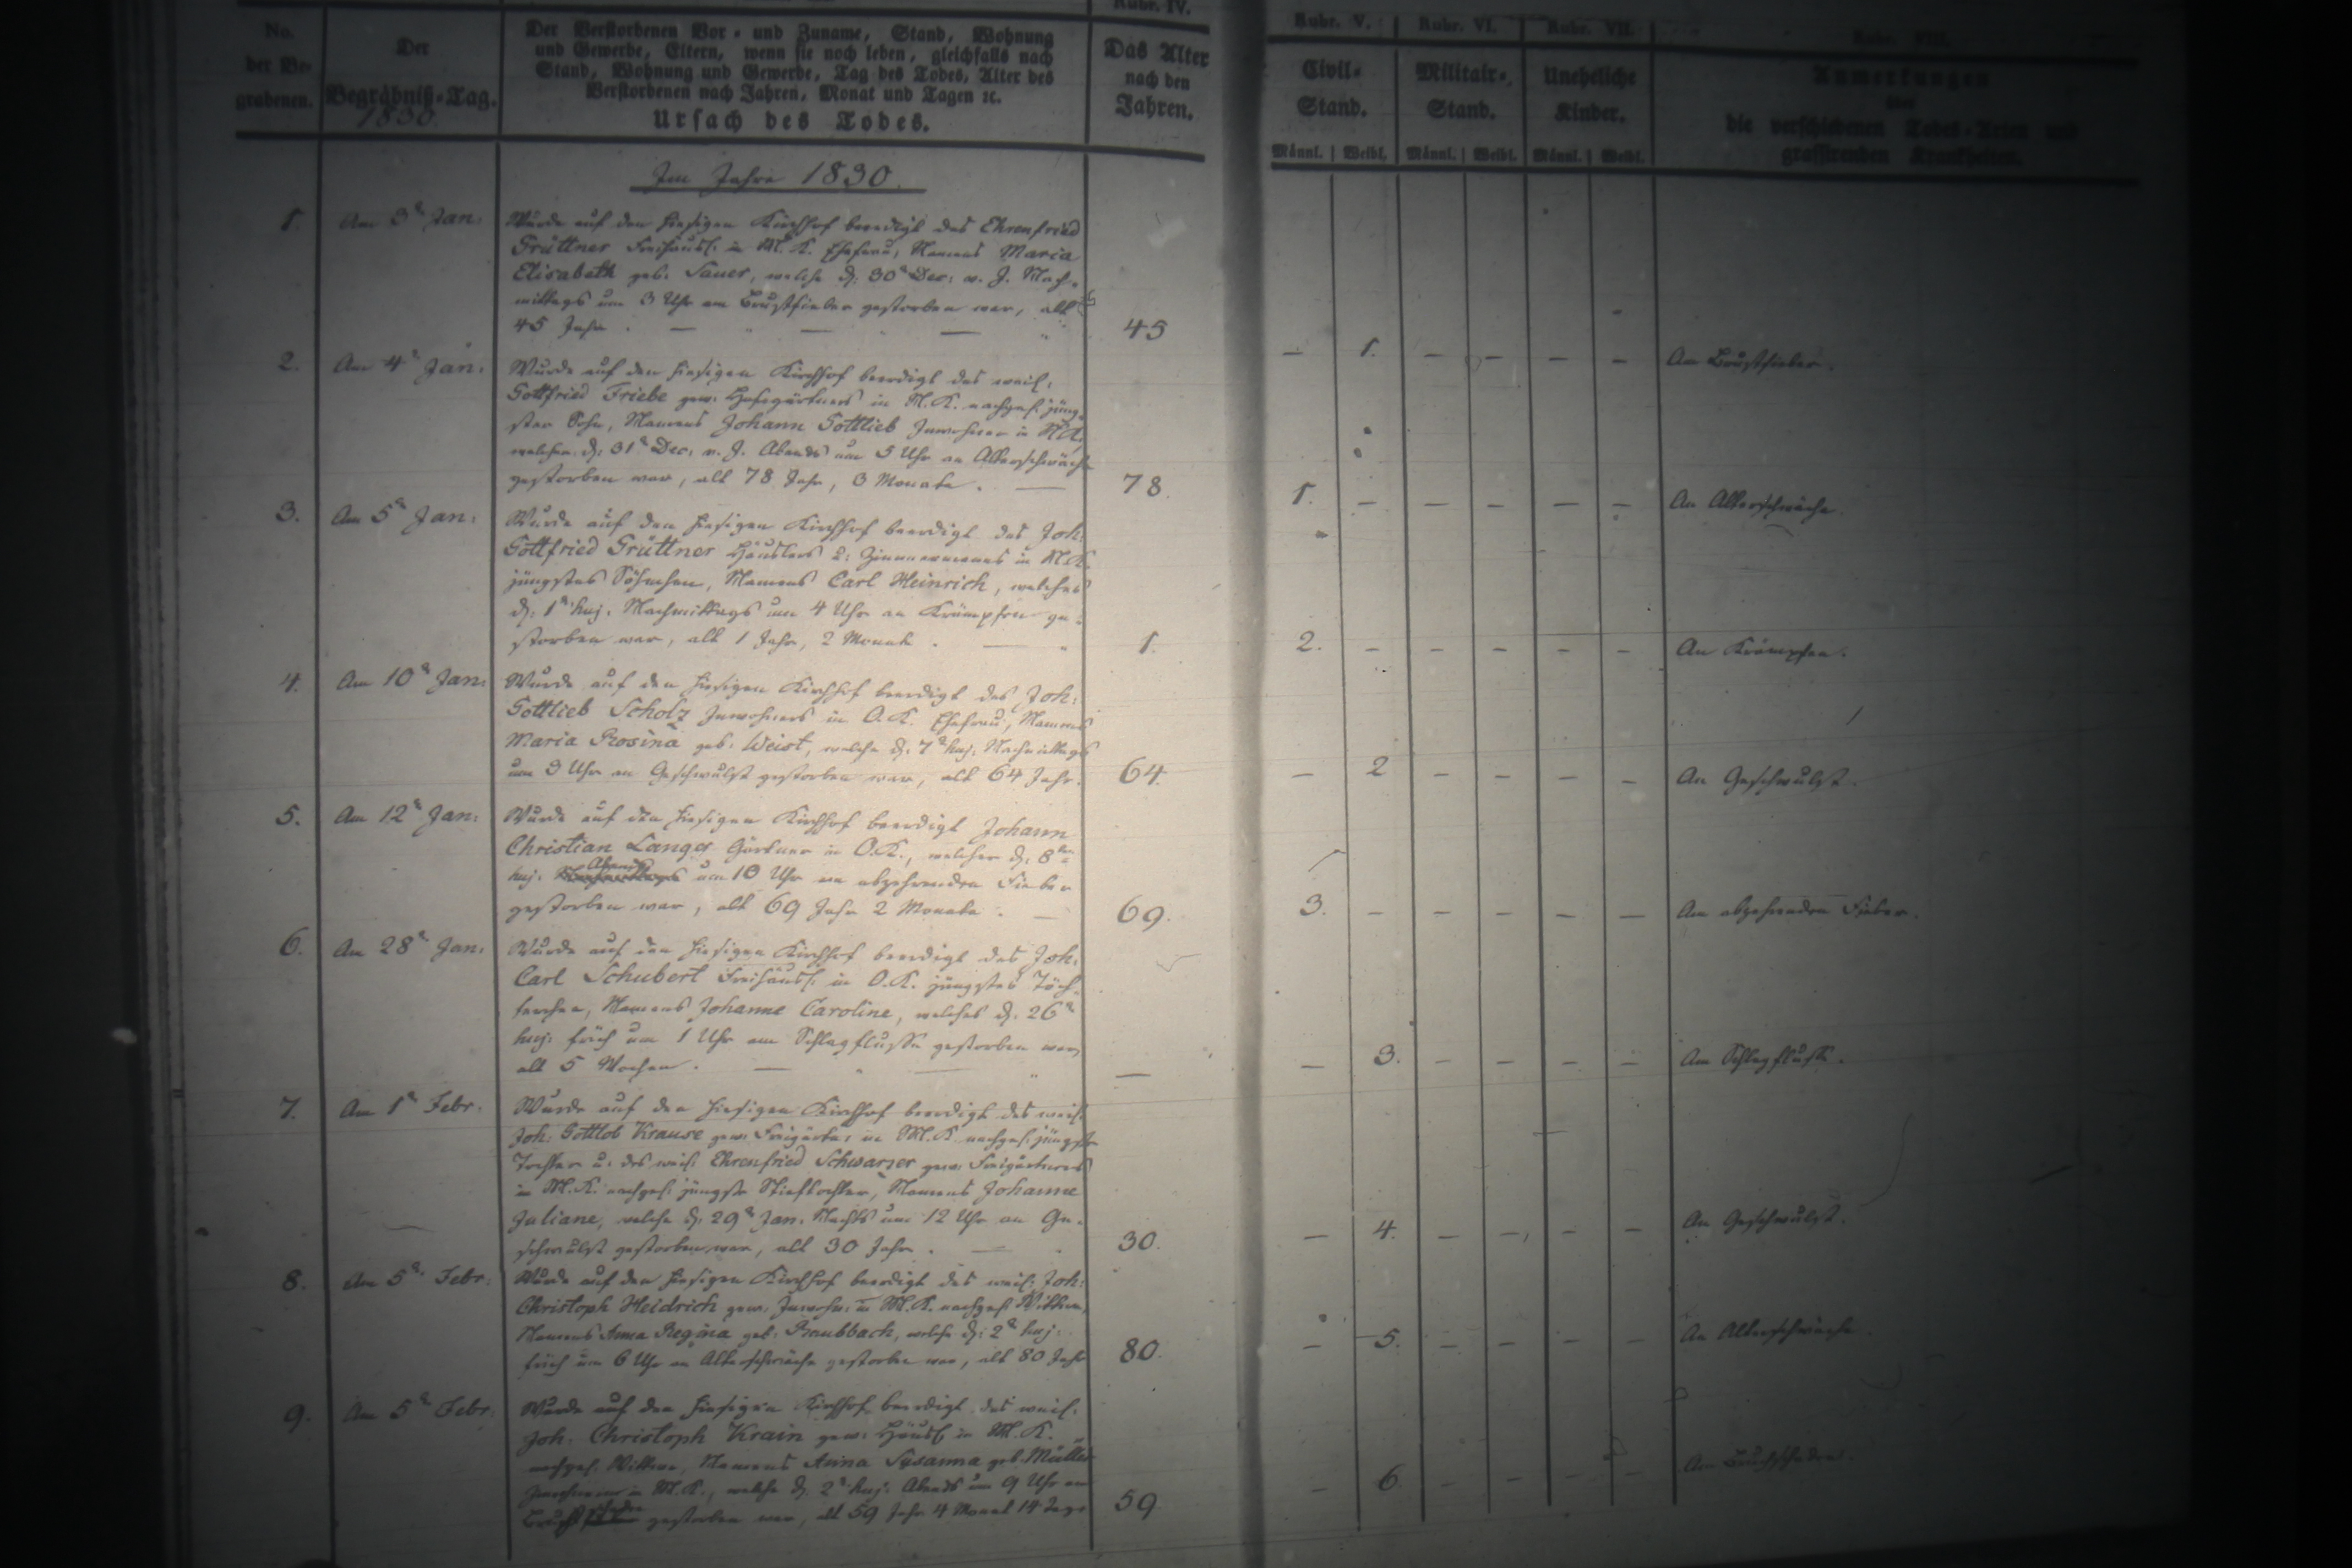 Rubr. IV.
Rubr. V.
Rubr. VI.
Rubr. VII.
Rubr. VIII.
No. der Be-
grabenen.
Der
Begräbniß-Tag.
1830.
Der Verstorbenen Vor- und Zuname, Stand, Wohnung
und Gewerbe, Eltern, wenn sie noch leben, gleichfalls nach
Stand, Wohnung und Gewerbe, Tag des Todes, Alter des
Verstorbenen nach Jahren, Monat und Tagen ꝛc.
Ursach des Todes.
Das Alter
nach den
Jahren.
Civil-
Stand.
Militair-
Stand.
Uneheliche
Kinder.
Anmerkungen
über
die verschiedenen Todes-Arten und
grassirenden Krankheiten.
Männl. Weibl. Männl. Weibl. Männl. Weibl.
Im Jahre 1830.
1. Am 3t Jan:
Wurde auf den hiesigen Kirchhof beerdigt des Ehrenfried
Grüttner Freihäusl. in M. K. Ehefrau, Namens Maria
Elisabeth geb. Sauer, welche d: 30t Dec: v. J. Nach-
mittags um 3 Uhr am Brustfieber gestorben war, alt
45 Jahr. 45
– 1. – – – – Am Brustfieber.
2. Am 4t Jan:
Wurde auf den hiesigen Kirchhof beerdigt des weil.
Gottfried Friebe gew. Hofegärtners in M. K. nachgel. jüng-
ster Sohn, Namens Johann Gottlieb Inwohner in
welcher d: 31t Dec: v. J. Abends um 5 Uhr an Altersschwäche
gestorben war, alt 78 Jahr, 3 Monate. 78.
1. – – – – – An Altersschwäche.
3. Am 5t Jan:
Wurde auf den hiesigen Kirchhof beerdigt des Joh:
Gottfried Grüttner Häuslers u: Zimmermanns in M. K.
jüngstes Söhnchen, Namens Carl Heinrich, welches
d: 1t huj. Nachmittags um 4 Uhr an Krämpfen ge-
storben war, alt 1 Jahr, 2 Monate. 1.
2. – – – – – An Krämpfen.
4. Am 10t Jan:
Wurde auf den hiesigen Kirchhof beerdigt des Joh:
Gottlieb Scholz Inwohners in O. K. Ehefrau, Namens
Maria Rosina geb. Weist, welche d: 7t huj. Nachmittags
um 3 Uhr an Geschwulst gestorben war, alt 64 Jahr. 64.
– 2 – – – – An Geschwulst.
5. Am 12t Jan:
Wurde auf den hiesigen Kirchhof beerdigt Johann
Christian Langer Gärtner in O. K., welcher d: 8ten
huj. Abends um 10 Uhr am abzehrenden Fieber
gestorben war, alt 69 Jahr 2 Monate. 69.
3. – – – – – Am abzehrenden Fieber.
6. Am 28t Jan:
Wurde auf den hiesigen Kirchhof beerdigt des Joh:
Carl Schubert Freihäusl. in O. K. jüngstes Töch-
terchen, Namens Johanne Caroline, welches d: 26t
huj. früh um 1 Uhr am Schlagflusse gestorben war,
alt 5 Wochen. —
– 3. – – – – Am Schlagflusse.
7. Am 1t Febr:
Wurde auf den hiesigen Kirchhof beerdigt des weil.
Joh: Gottlob Krause gew. Freigärtn: in M. K. nachgel. jüngste
Tochter u: des weil. Ehrenfried Schwarzer gew. Freigärtners
in M. K. nachgel. jüngste Stieftochter, Namens Johanne
Juliane, welche d: 29t Jan. Nachts um 12 Uhr an Ge-
schwulst gestorben war, alt 30 Jahr. 30.
– 4. – – – – An Geschwulst.
8. Am 5t Febr:
Wurde auf den hiesigen Kirchhof beerdigt des weil. Joh:
Christoph Heidrich gew. Inwohn: in M. K. nachgel. Wittwe,
Namens Anna Regina geb: Raubbach, welche d: 2t huj.
früh um 6 Uhr an Altersschwäche gestorben war, alt 80 Jahr 80.
– 5. – – – – An Altersschwäche.
9. Am 5t Febr:
Wurde auf den hiesigen Kirchhof beerdigt des weil.
Joh. Christoph Krain gew: Häusl. in M. K.
nachgel. Wittwe, Namens Anna Susanna geb. Müller
Inwohnerin in M. K., welche d: 2t huj. Abends um 9 Uhr am
gestorben war, alt 59 Jahr 4 Monat 14 Tage 59
– 6 – – – – Am Bruchschaden.